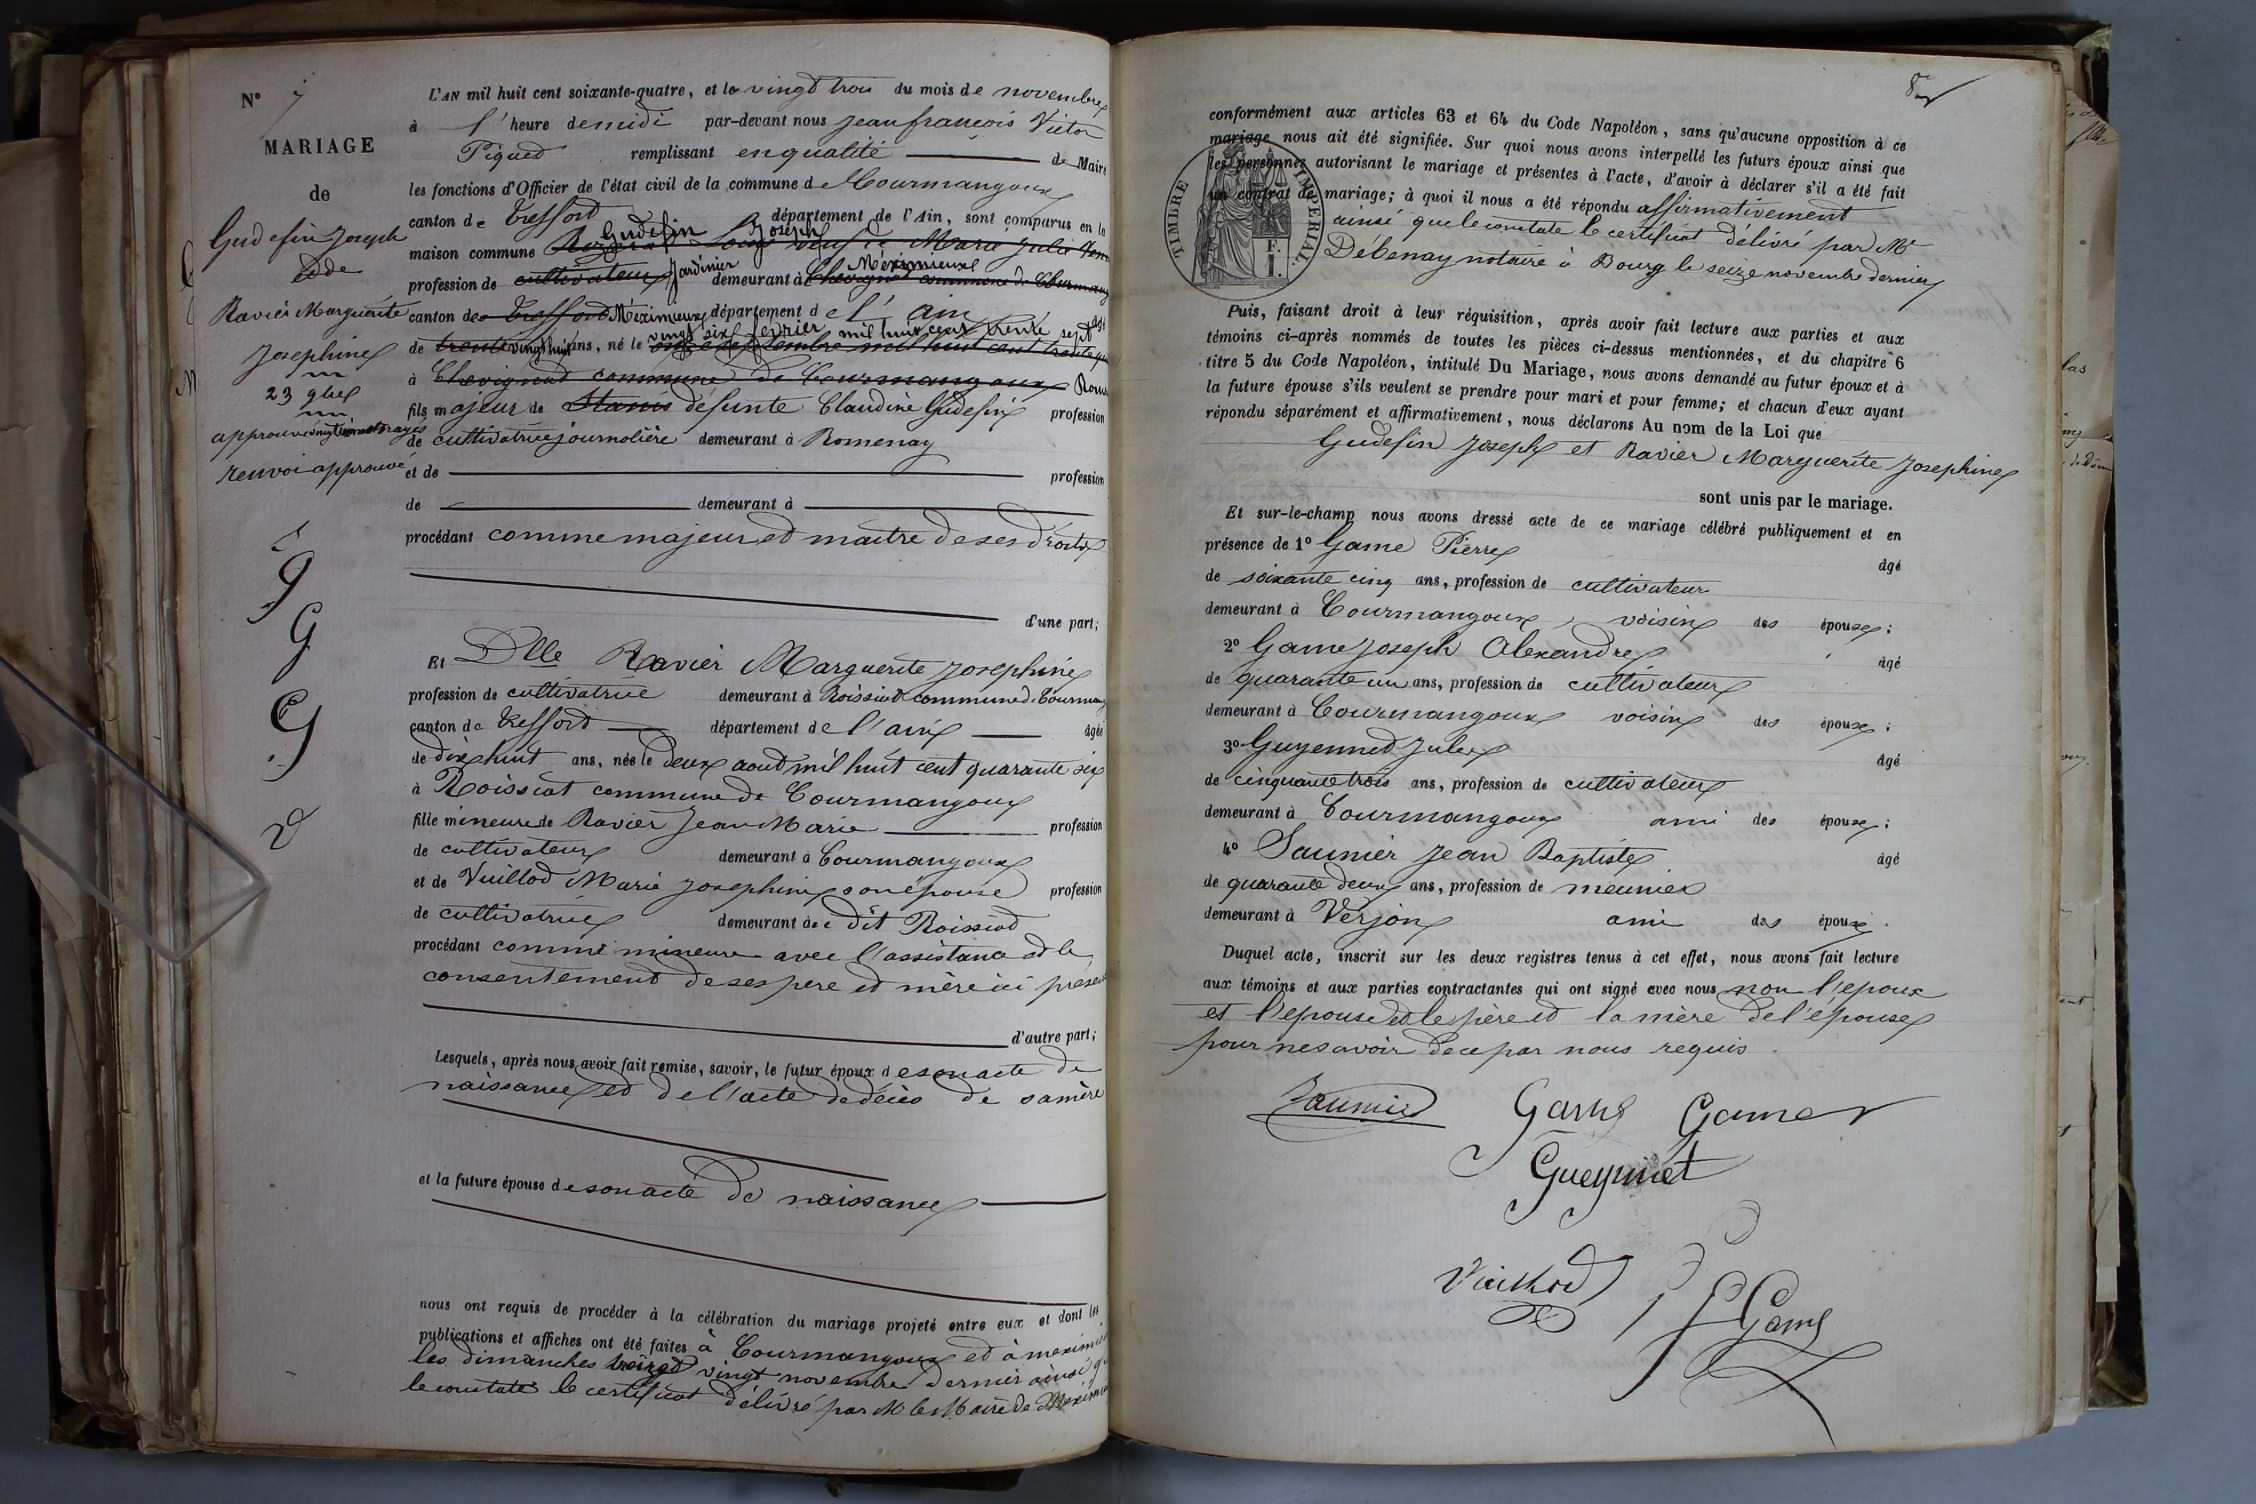 N° 7
MARIAGE
de
Gudefin Joseph
et de
Ravier Marguerite
Josephine
23 9bre
approuvé vingt mots rayés
renvoi approuvé
L'AN mil huit cent soixante-quatre, et le vingt trois du mois de novembre
à l'heure de midi par-devant nous Jean françois Victor
Piquet remplissant en qualité de Maire
les fonctions d'Officier de l'état civil de la commune de Courmangoux
canton de Treffort département de l'Ain, sont comparus en la
Gudefin Joseph
maison commune veuf de Marie Julie
Jardinier Méximieux
profession de cultivateur demeurant à Chevignat commune de Courmang
canton de Treffort Méximieux département de l'ain âgé
vingt six fevrier mil huit cent trente sept
de trente vingt huit ans, né le onze septembre mil huit cent trente
à Chevignat commune de Courmangoux Rom
fils majeur de Stanis défunte Claudine Gudefin profession
de cultivatrice journalière demeurant à Romenay
et de profession
de demeurant à
procédant comme majeur et maître de ses droits
d'une part;
Et Dlle Ravier Marguerite Josephine
profession de cultivatrice demeurant à Roissiat commune d Courmang
canton de Treffort département de l'ain âgée
de dix huit ans, née le deux aout mil huit cent quarante six
à Roissiat commune de Courmangoux
fille mineure de Ravier Jean Marie profession
de cultivateur demeurant à Courmangoux
et de Vuillod Marie Josephine son épouse profession
de cultivatrice demeurant à dit Roissiat
procédant comme mineure avec l'assistance et le
consentement de ses père et mère ici présen
d'autre part;
Lesquels, après nous avoir fait remise, savoir, le futur époux de son acte de
naissance et de l'acte de décès de sa mère
et la future épouse de son acte de naissance
nous ont requis de procéder à la célébration du mariage projeté entre eux et dont les
publications et affiches ont été faites à Courmangoux et à meximi
les dimanches treize et vingt novembre dernier ainsi q
le constate le certificat délivré par M le Maire de Mexim
conformément aux articles 63 et 64 du Code Napoléon, sans qu'aucune opposition à ce
mariage nous ait été signifiée. Sur quoi nous avons interpellé les futurs époux ainsi que
les personnes autorisant le mariage et présentes à l'acte, d'avoir à déclarer s'il a été fait
un contrat de mariage; à quoi il nous a été répondu affirmativement
ainsi que le constate le certificat délivré par Me
Debenay notaire à Bourg le seize novembre dernier
TIMBRE IMPERIAL.
1 F.
Puis, faisant droit à leur réquisition, après avoir fait lecture aux parties et aux
témoins ci-après nommés de toutes les pièces ci-dessus mentionnées, et du chapitre 6
titre 5 du Code Napoléon, intitulé Du Mariage, nous avons demandé au futur époux et à
la future épouse s'ils veulent se prendre pour mari et pour femme; et chacun d'eux ayant
répondu séparément et affirmativement, nous déclarons Au nom de la Loi que
Gudefin Joseph et Ravier Marguerite Josephine
sont unis par le mariage.
Et sur-le-champ nous avons dressé acte de ce mariage célébré publiquement et en
présence de 1° Game Pierre âgé
de soixante cinq ans, profession de cultivateur
demeurant à Courmangoux, voisin des époux;
2° Game Joseph Alexandre âgé
de quarante un ans, profession de cultivateur
demeurant à Courmangoux voisin des époux;
3° Guyennet Jules âgé
de cinquante trois ans, profession de cultivateur
demeurant à Courmangoux ami des époux;
4° Saunier Jean Baptiste âgé
de quarante deux ans, profession de meunier
demeurant à Verjon ami des époux.
Duquel acte, inscrit sur les deux registres tenus à cet effet, nous avons fait lecture
aux témoins et aux parties contractantes qui ont signé avec nous non l'epoux
et l'epouse et le père et la mère de l'épouse
pour ne savoir de ce par nous requis.
Saunier Game Game
Gueynnet
Vuillod
Game